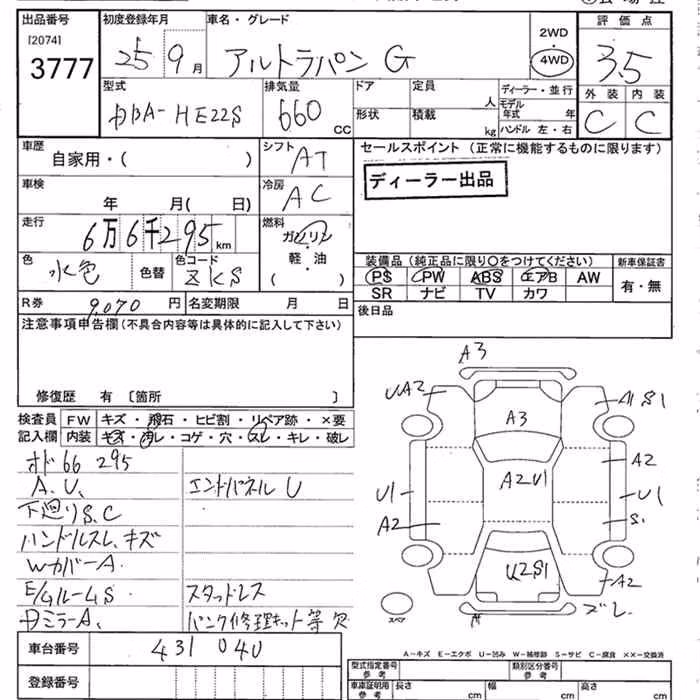 出品番号 初度登録年月 車名・グレード 2WD 評価点
[2074] 3777 25 9月 アルトラパン G 4WD 3.5
型式 排気量 ドア 定員 人 ディーラー・並行 外装 内装
DBA-HE22S 660 CC 形状 積載 kg モデル年式 年 ハンドル 左・右 C C
車歴 シフト セールスポイント (正常に機能するものに限ります)
自家用・( ) AT
ディーラー出品
車検 冷房
年 月( 日) AC
走行 燃料
6万6千295km ガソリン
軽・油
( )
装備品 (純正品に限り○をつけてください) 新車保証書
色 色コード PS PW ABS エアB AW 有・無
水色 色替 ZKS SR ナビ TV カワ
R券 9,070 円 名変期限 月 日 後日品
注意事項申告欄(不具合内容等は具体的に記入して下さい)
修復歴 有 [箇所 ]
検査員 FW キズ・飛石・ヒビ割・リペア跡・×要
記入欄 内装 キズ・汚レ・コゲ・穴・スレ・キレ・破レ
オド 66 295
A.U、 エンドパネル U
下廻りS.C
ハンドルスレ、キズ
Wカバー A.
E/Gルーム S スタッドレス
ミラーA、 パンク修理キット等 欠
A3
UA2 A1 S1
A3
A2
A2 U1
U1 U1
A2 S1
U2S1
A2
ズレ
スペア
A-キズ E-エクボ U-凹み W-補修跡 S-サビ C-腐食 ××-交換済
車台番号 431040
登録番号
型式指定番号 参考 類別区分番号 参考
車庫証明用 参考 長さ cm 幅 cm 高さ cm